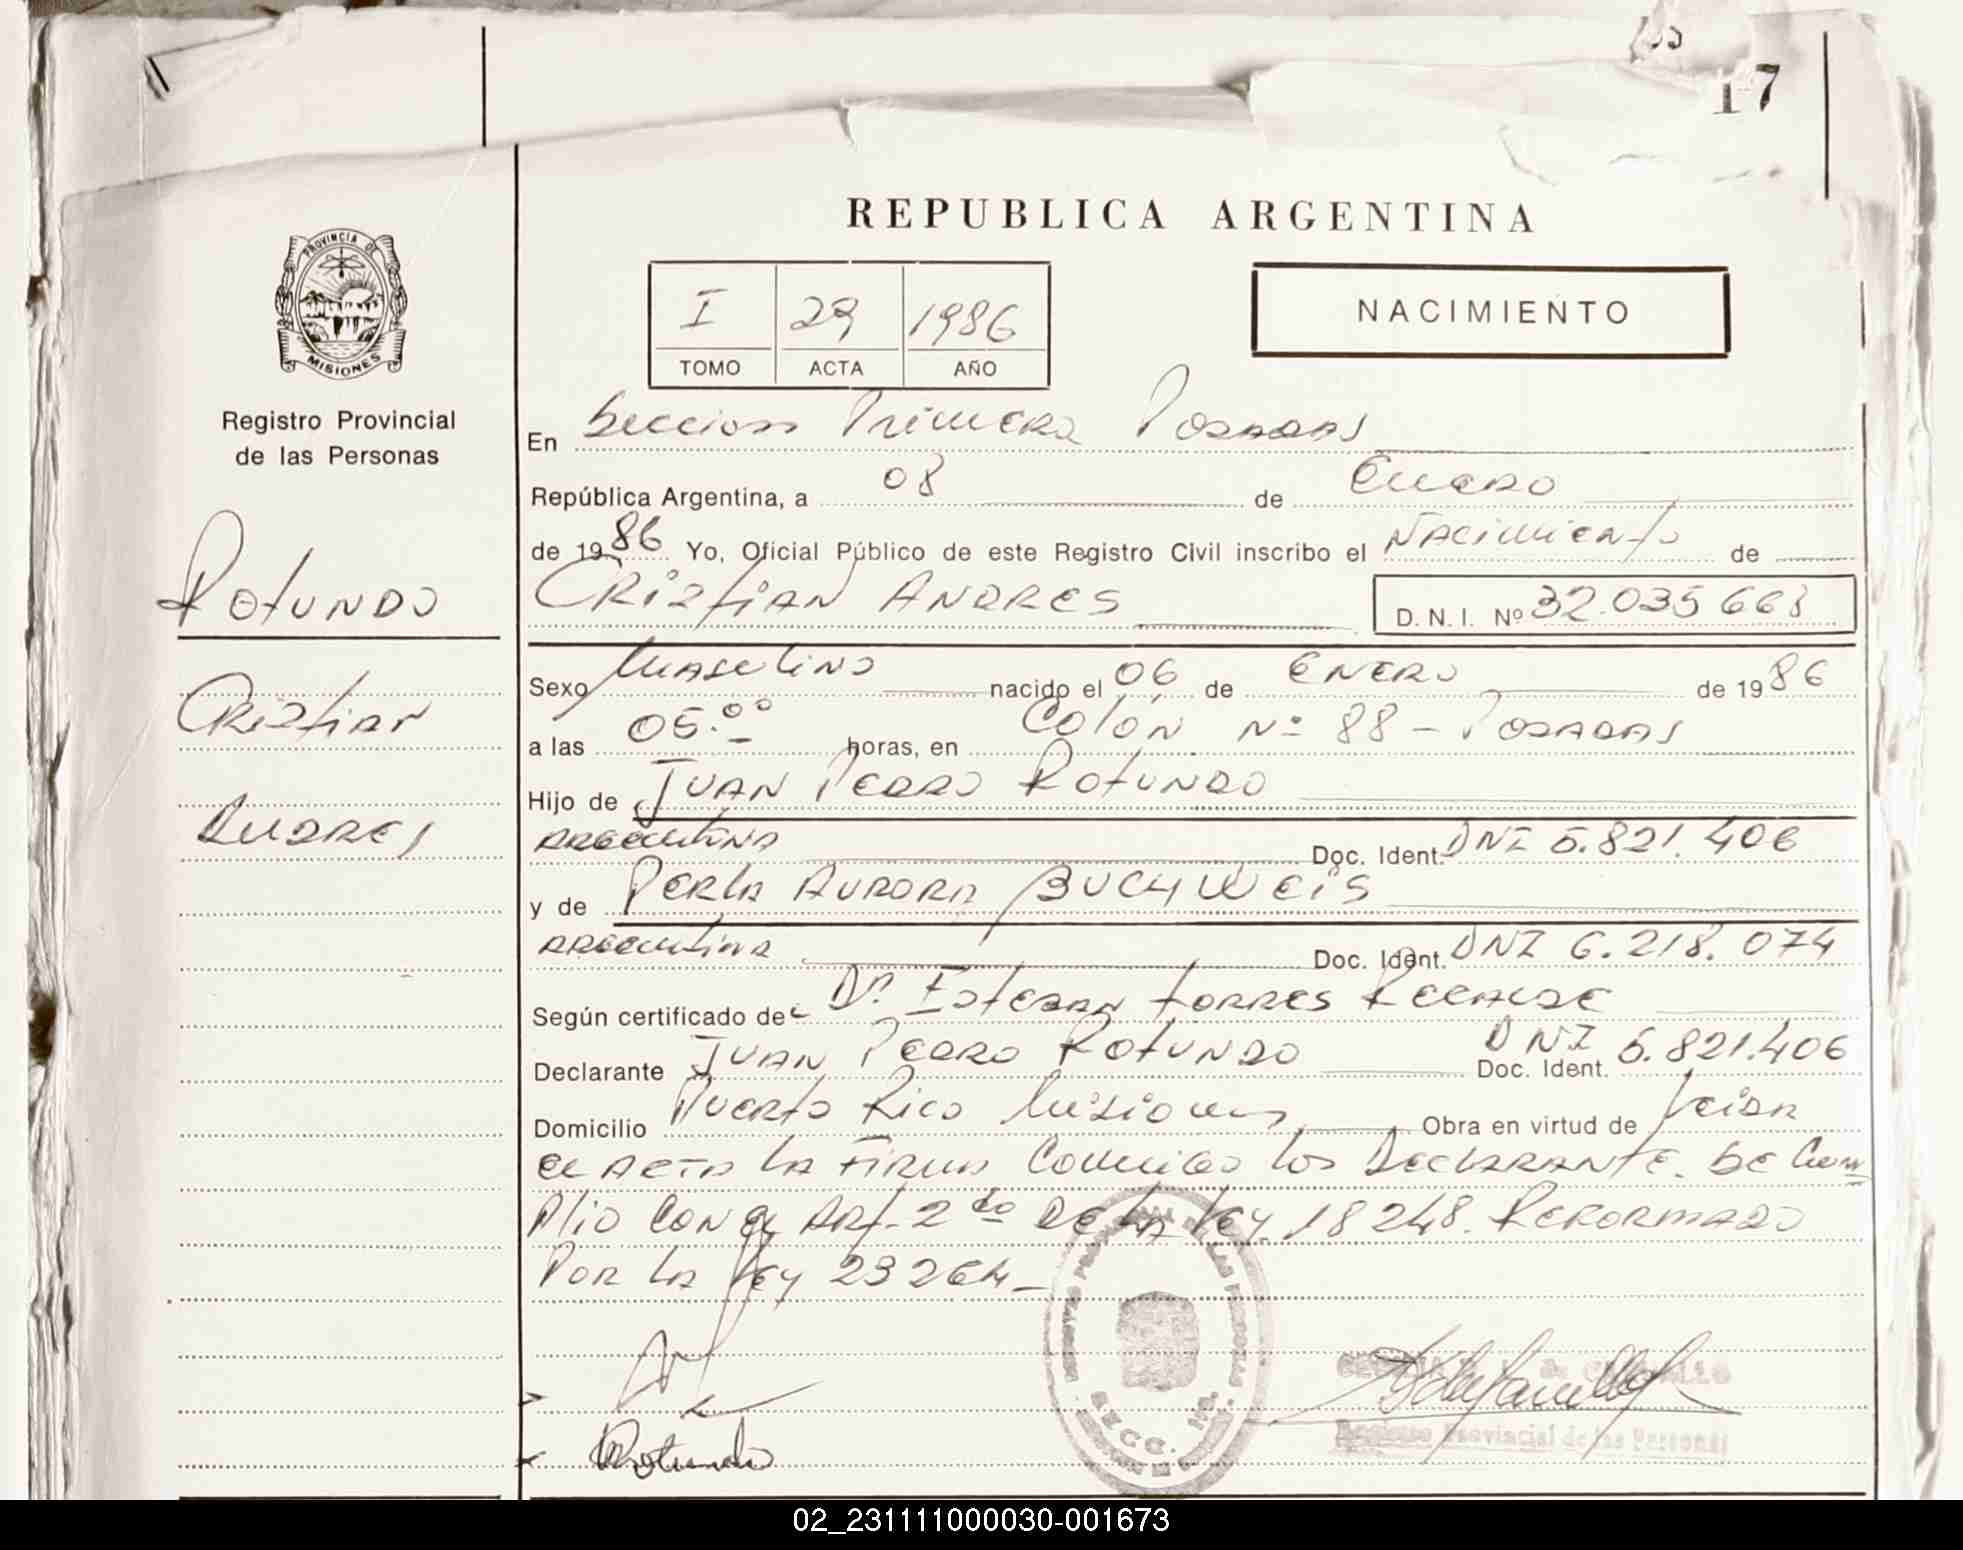 17
REPUBLICA ARGENTINA
PROVINCIA DE
MISIONES
I 29 1986
TOMO ACTA AÑO
NACIMIENTO
Registro Provincial
de las Personas
Rotundo
Cristian
Andres
En Seccion Primera Posadas
República Argentina, a 08 de Enero
de 1986 Yo, Oficial Público de este Registro Civil inscribo el Nacimiento de
CRISTIAN ANDRES D.N.I. Nº 32.035 663
Sexo Masculino nacido el 06 de ENERO de 1986
a las 05.00 horas, en Colón Nº 88 - Posadas
Hijo de JUAN PEDRO ROTUNDO
Argentino Doc. Ident. DNI 5.821.406
y de PERLA AURORA BUCHWEIS
Argentina Doc. Ident. DNI 6.218.074
Según certificado de Dr. Esteban Torres Recalde
Declarante JUAN PEDRO ROTUNDO Doc. Ident. DNI 5.821.406
Domicilio Puerto Rico Misiones Obra en virtud de Leida
el Acta la Firma Conmigo los Declarante. Se Cum
plio con el Art. 2do De la Ley 18248. Reformado
Por la Ley 23264-
Rotundo
SECC. 1ra.
Registro Provincial de las Personas
02_231111000030-001673